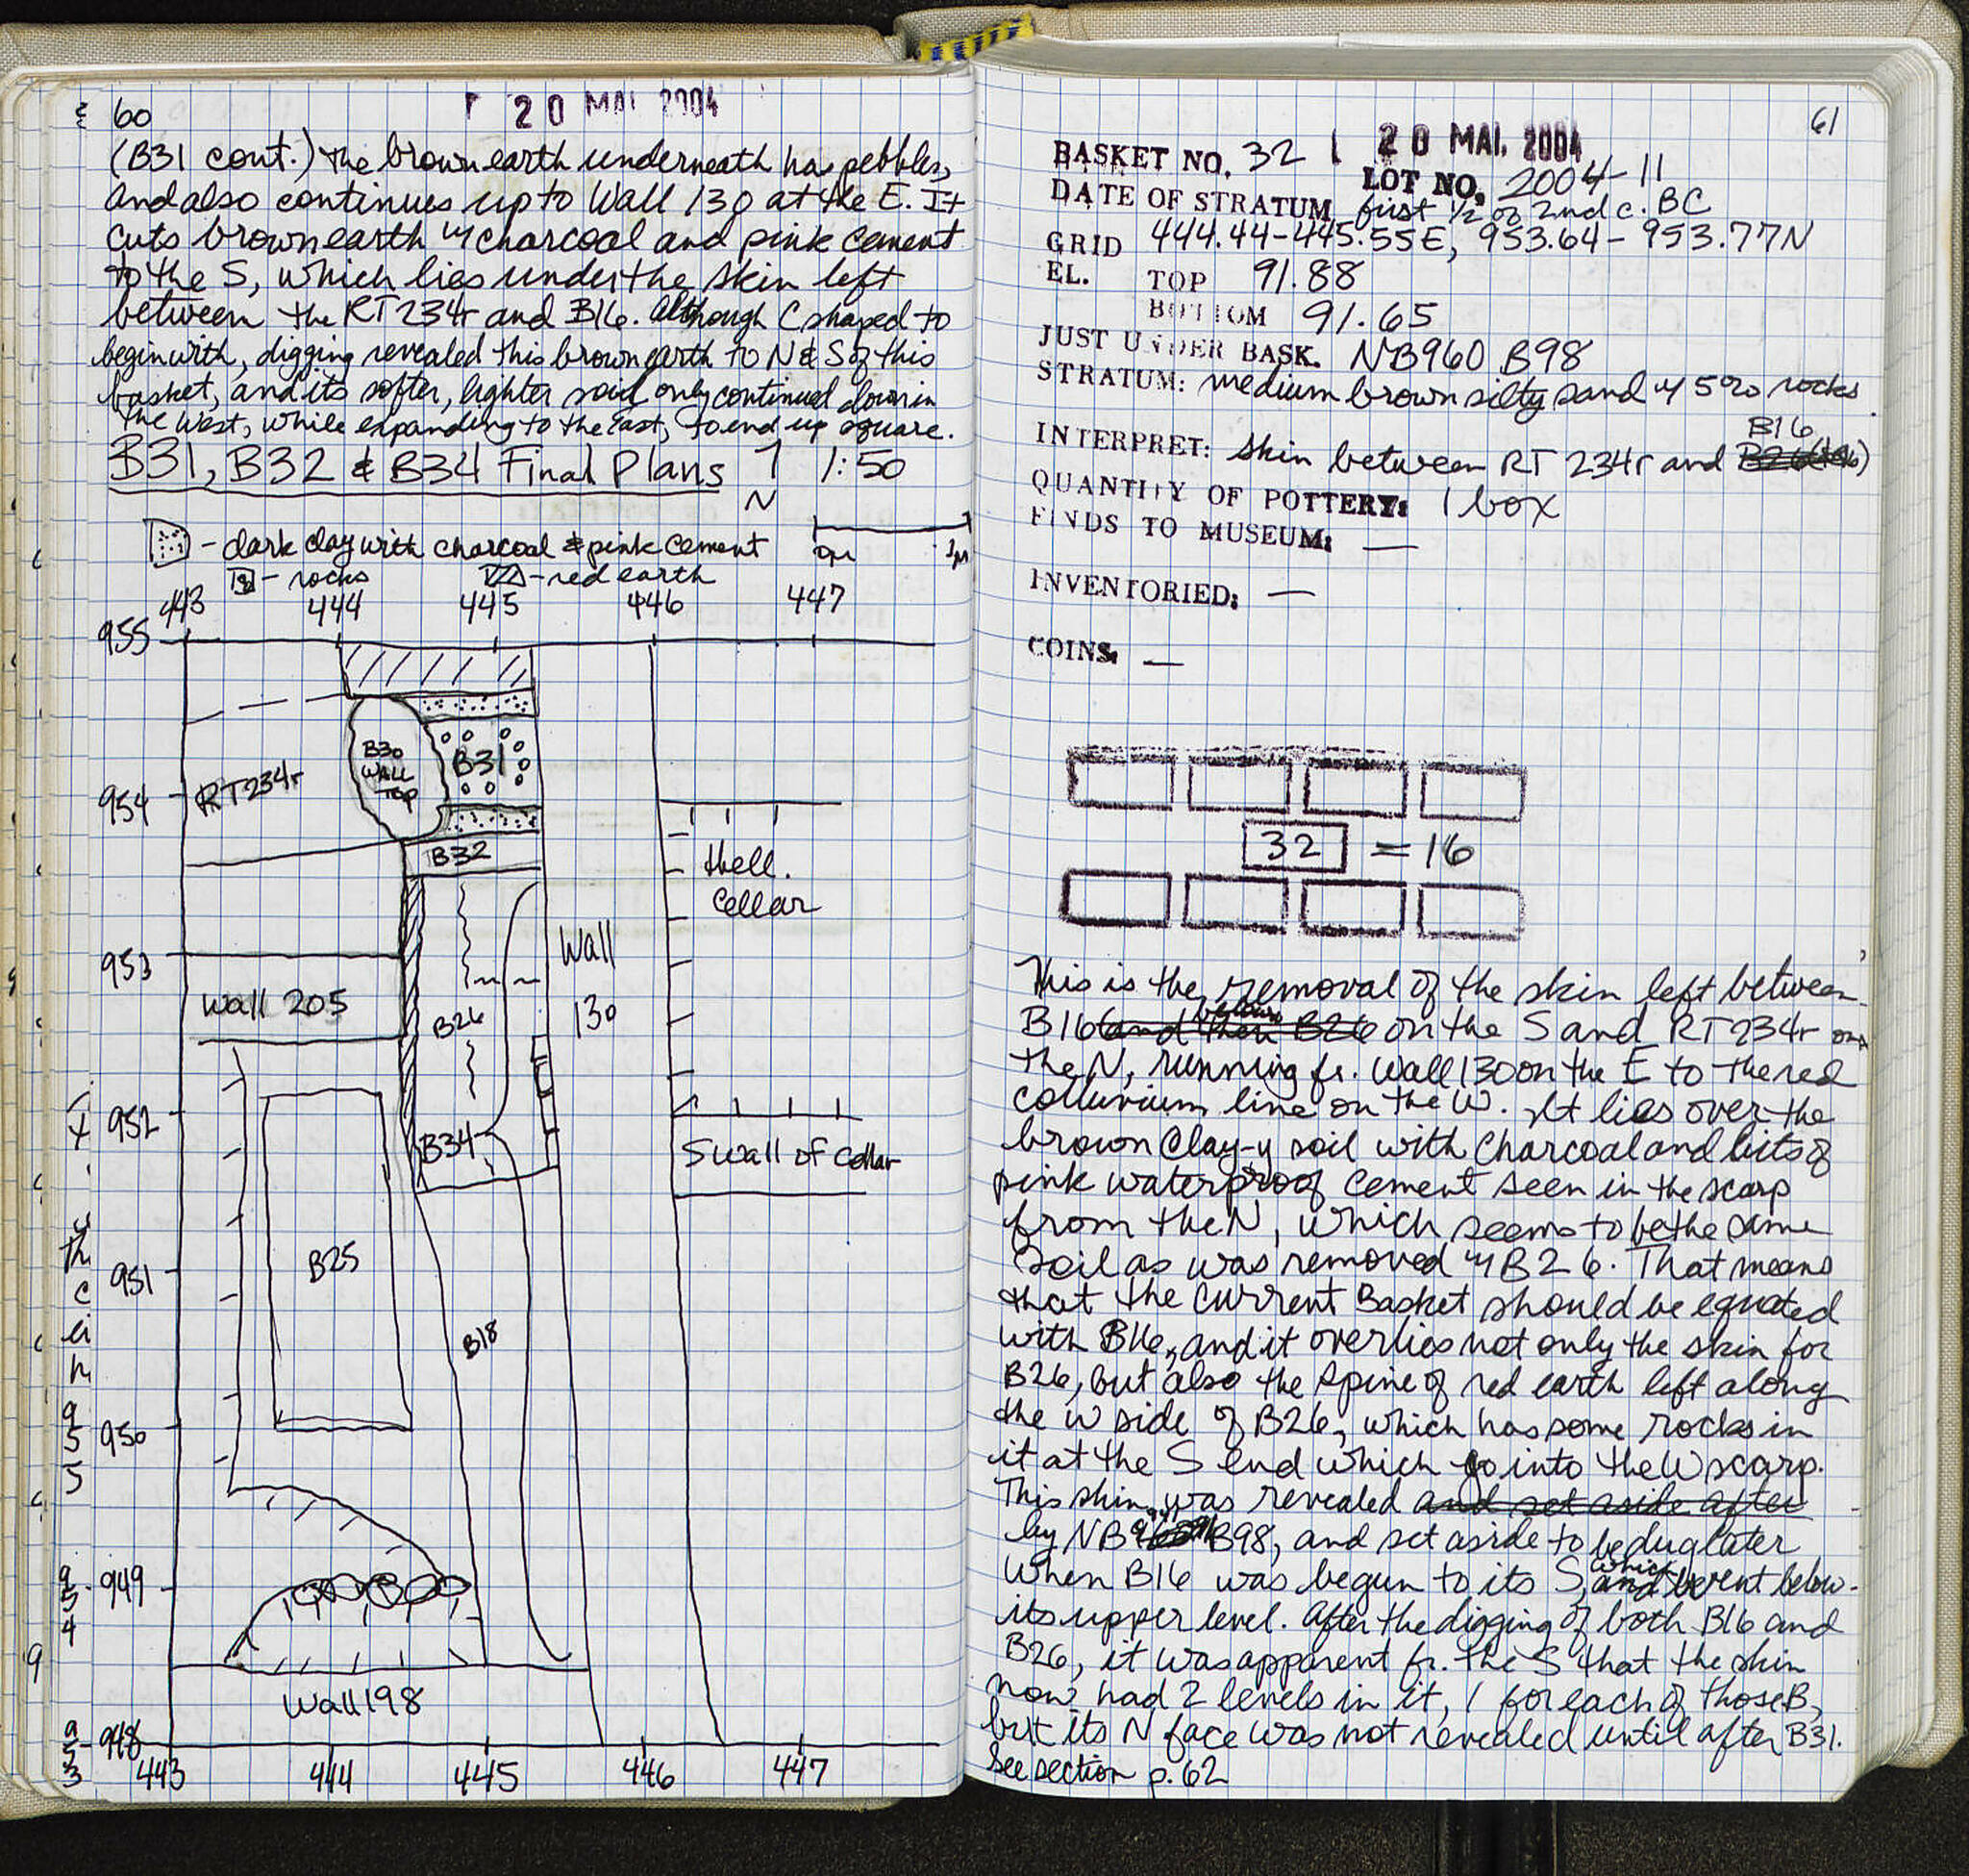 60
20 MAI 2004
(B31 cont.) the brown earth underneath has pebbles,
and also continues up to Wall 130 at the E. It
cuts brown earth w/ charcoal and pink cement
to the S, which lies under the skin left
between the RT234r and B16. Although C shaped to
begin with, digging revealed this brown earth to N & S of this
basket, and its softer, lighter soil only continued down in
the West, while expanding to the East, to end up square.
B31, B32 & B34 Final Plans 1:50
N
- dark clay with charcoal & pink cement
0m 1m
- rocks
- red earth
443 444 445 446 447
955
B30
WALL
TOP
B31
RT234r
954
B32
Hell.
Cellar
953
Wall
130
Wall 205
B26
952
B34
S wall of cellar
B25
951
B18
950
949
Wall 198
948
443 444 445 446 447
61
20 MAI. 2004
BASKET NO. 32
LOT NO. 2004-11
DATE OF STRATUM first 1/2 of 2nd c. BC
GRID 444.44-445.55E, 953.64-953.77N
EL. TOP 91.88
BOTTOM 91.65
JUST UNDER BASK. NB960 B98
STRATUM: medium brown silty sand w/ 5% rocks
B16
INTERPRET: skin between RT 234r and
QUANTITY OF POTTERY: 1 box
FINDS TO MUSEUM: —
INVENTORIED: —
COINS: —
32 = 16
This is the removal of the skin left between
B16 and then below B26 on the S and RT234r on
the N, running fr. Wall 130 on the E to the red
colluvium line on the W. It lies over the
brown clay-y soil with charcoal and bits of
pink waterproof cement seen in the scarp
from the N, which seems to be the same
soil as was removed w/ B26. That means
that the current Basket should be equated
with B16, and it overlies not only the skin for
B26, but also the spine of red earth left along
the W side of B26, which has some rocks in
it at the S end which go into the W scarp.
This skin was revealed and set aside after
by NB B98, and set aside to be dug later
when B16 was begun to its S, and which went below
its upper level. After the digging of both B16 and
B26, it was apparent fr. the S that the skin
now had 2 levels in it, 1 for each of those B,
but its N face was not revealed until after B31.
See section p. 62